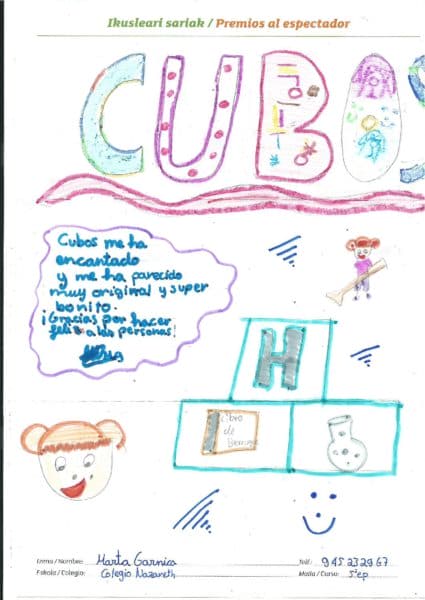 Ikusleari sariak / Premios al espectador
CUBOS
Cubos me ha
encantado
y me ha parecido
muy original y super
bonito.
¡Gracias por hacer
feliz a las personas!
H
Libro
de
Izena / Nombre: Marta Garnica Telf.: 945 232967
Eskola / Colegio: Colegio Nazareth Maila / Curso: 5ºep